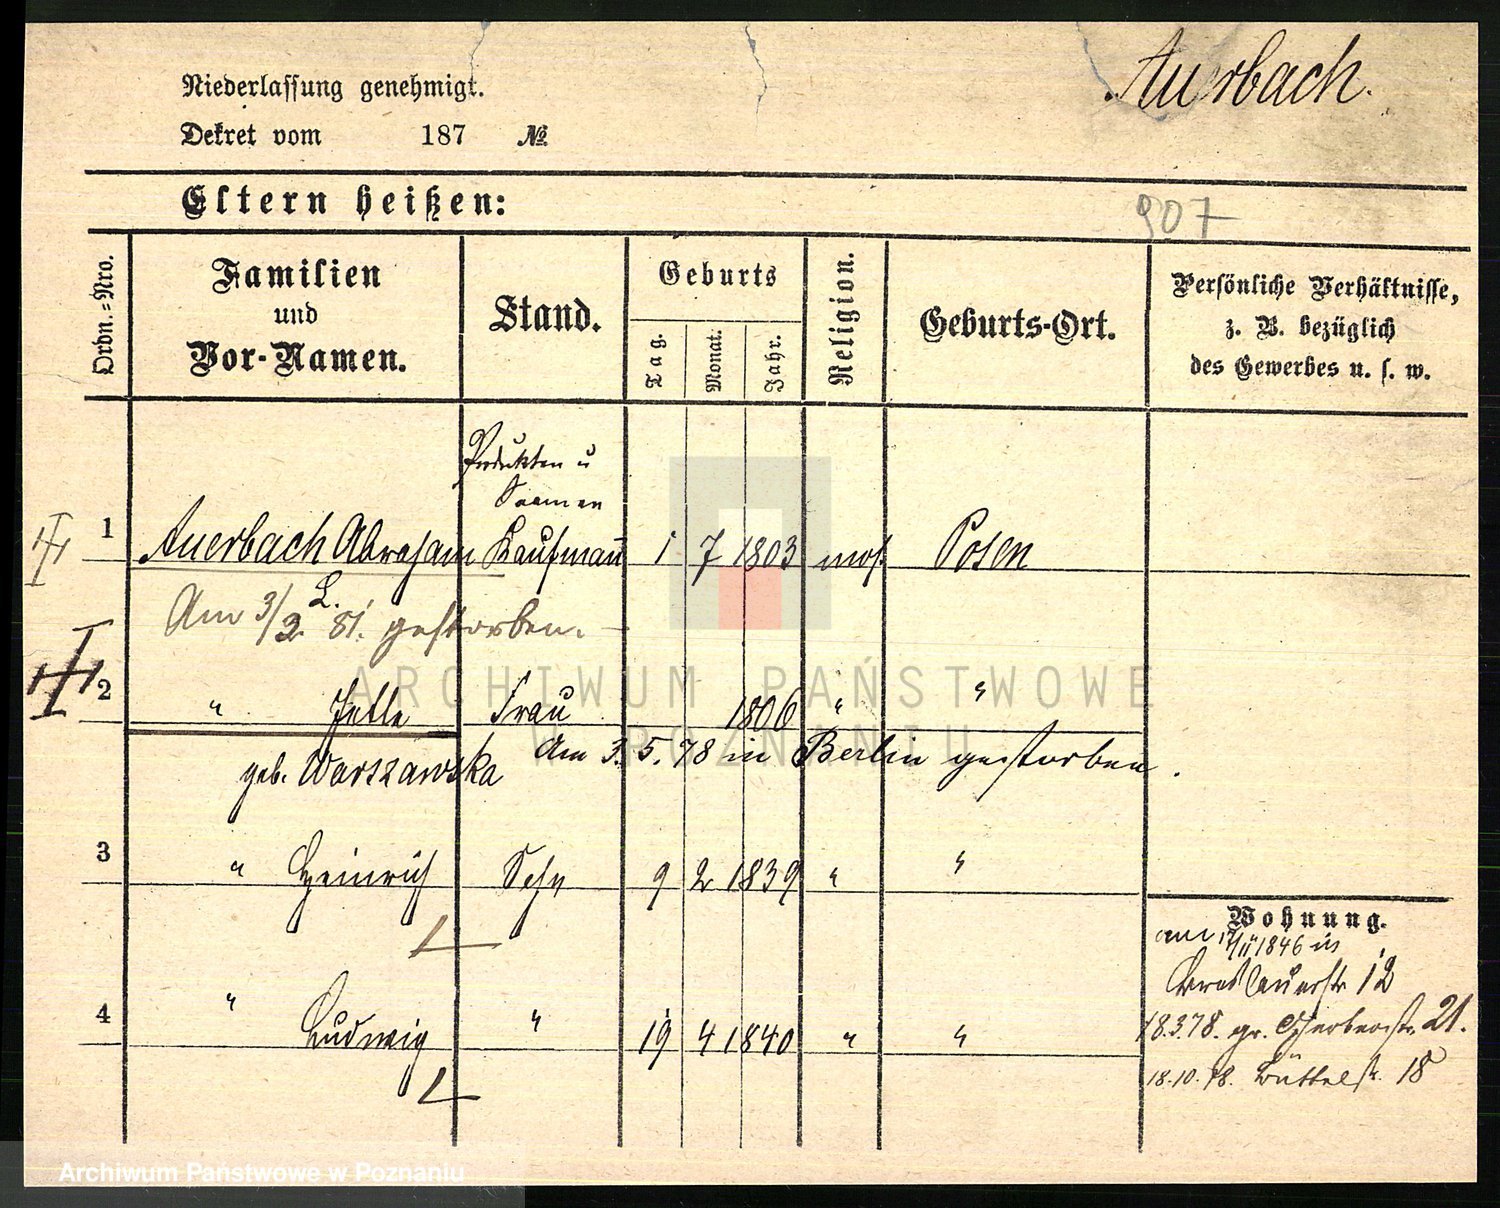 Auerbach.
Niederlassung genehmigt.
Dekret vom 187 №
Eltern heißen:
907
Ordn.=Nro.
Familien
und
Vor-Namen.
Stand.
Geburts
Tag.
Monat.
Jahr.
Religion.
Geburts-Ort.
Persönliche Verhältnisse,
z. B. bezüglich
des Gewerbes u. s. w.
Produkten u
Saamen
1 Auerbach Abraham Kaufmann 1 7 1803 mos. Posen
Am 3/2. 81. gestorben.
2 " Jette Frau 1806 " "
geb. Warszawska Am 3. 5. 78 in Berlin gestorben.
3 " Heinrich Sohn 9 2 1839 " "
Wohnung.
am 17/11 1846 in
Breslauerstr 12
4 " Ludwig " 19 4 1840 " "
18.3.78. gr. Gerberstr. 21.
18.10.78. Büttelstr. 18
ARCHIWUM PAŃSTWOWE
W POZNANIU
Archiwum Państwowe w Poznaniu